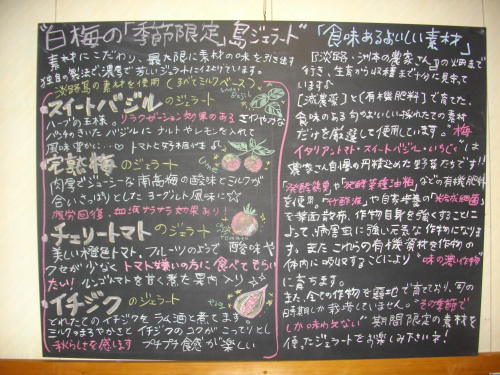 "白梅の「季節限定」島ジェラート"
素材にこだわり、最大限に素材の味を引き出す
独自の製法で、濃厚で芳しいジェラートに仕上げています。
淡路島の素材を使用(すべてミルクベース)
・スイートバジルのジェラート
ハーブの王様。リラクゼーション効果のあるさわやかな
バジルにナルトオレンジを入れて
風味豊かに…♡トマトと好相性だよ♪
・完熟梅のジェラート
肉厚でジューシーな南高梅の酸味とミルクが
合いさっぱりとしたヨーグルト風味に☆
疲労回復・血液サラサラ効果あり!
・チェリートマトのジェラート
美しい橙色トマト、フルーツのようで酸味や
クセが少なく、トマト嫌いの方に食べてもらい
たい!リンゴトマトを甘く煮た果肉入り
・イチジクのジェラート
とれたてのイチジクをラム酒と煮てます。
ミルクのまろやかさとイチジクのコクがこってりとし
秋らしさを感じます プチプチ食感が楽しい
「食味あるおいしい素材」
『淡路・洲本の農家さん』の畑まで
行き、生育から収穫まで十分に見守って
います♪
[減農薬]と[有機肥料]で育てた、
食味のある旬のおいしい採れたての素材
だけを厳選して使用しています。梅
イタリアントマト・スイートバジル・いちじくは
農家さん自慢の丹精込めた野菜たちです!!
「発酵鶏糞」や「発酵菜種油粕」などの有機肥料
を使用。「竹酢液」や自家培養の「光合成細菌」
を葉面散布、作物自身を強くすることに
よって、病害虫に強い元気な作物になりま
す。またこれらの有機資材を作物の
体内に吸収することにより"味の濃い作物"
に育ちます。
また、全ての作物を露地で育てており、旬の
時期しか栽培していません。"その季節で
しか味わえない"期間限定の素材を
使ったジェラートをお楽しみ下さいネ!